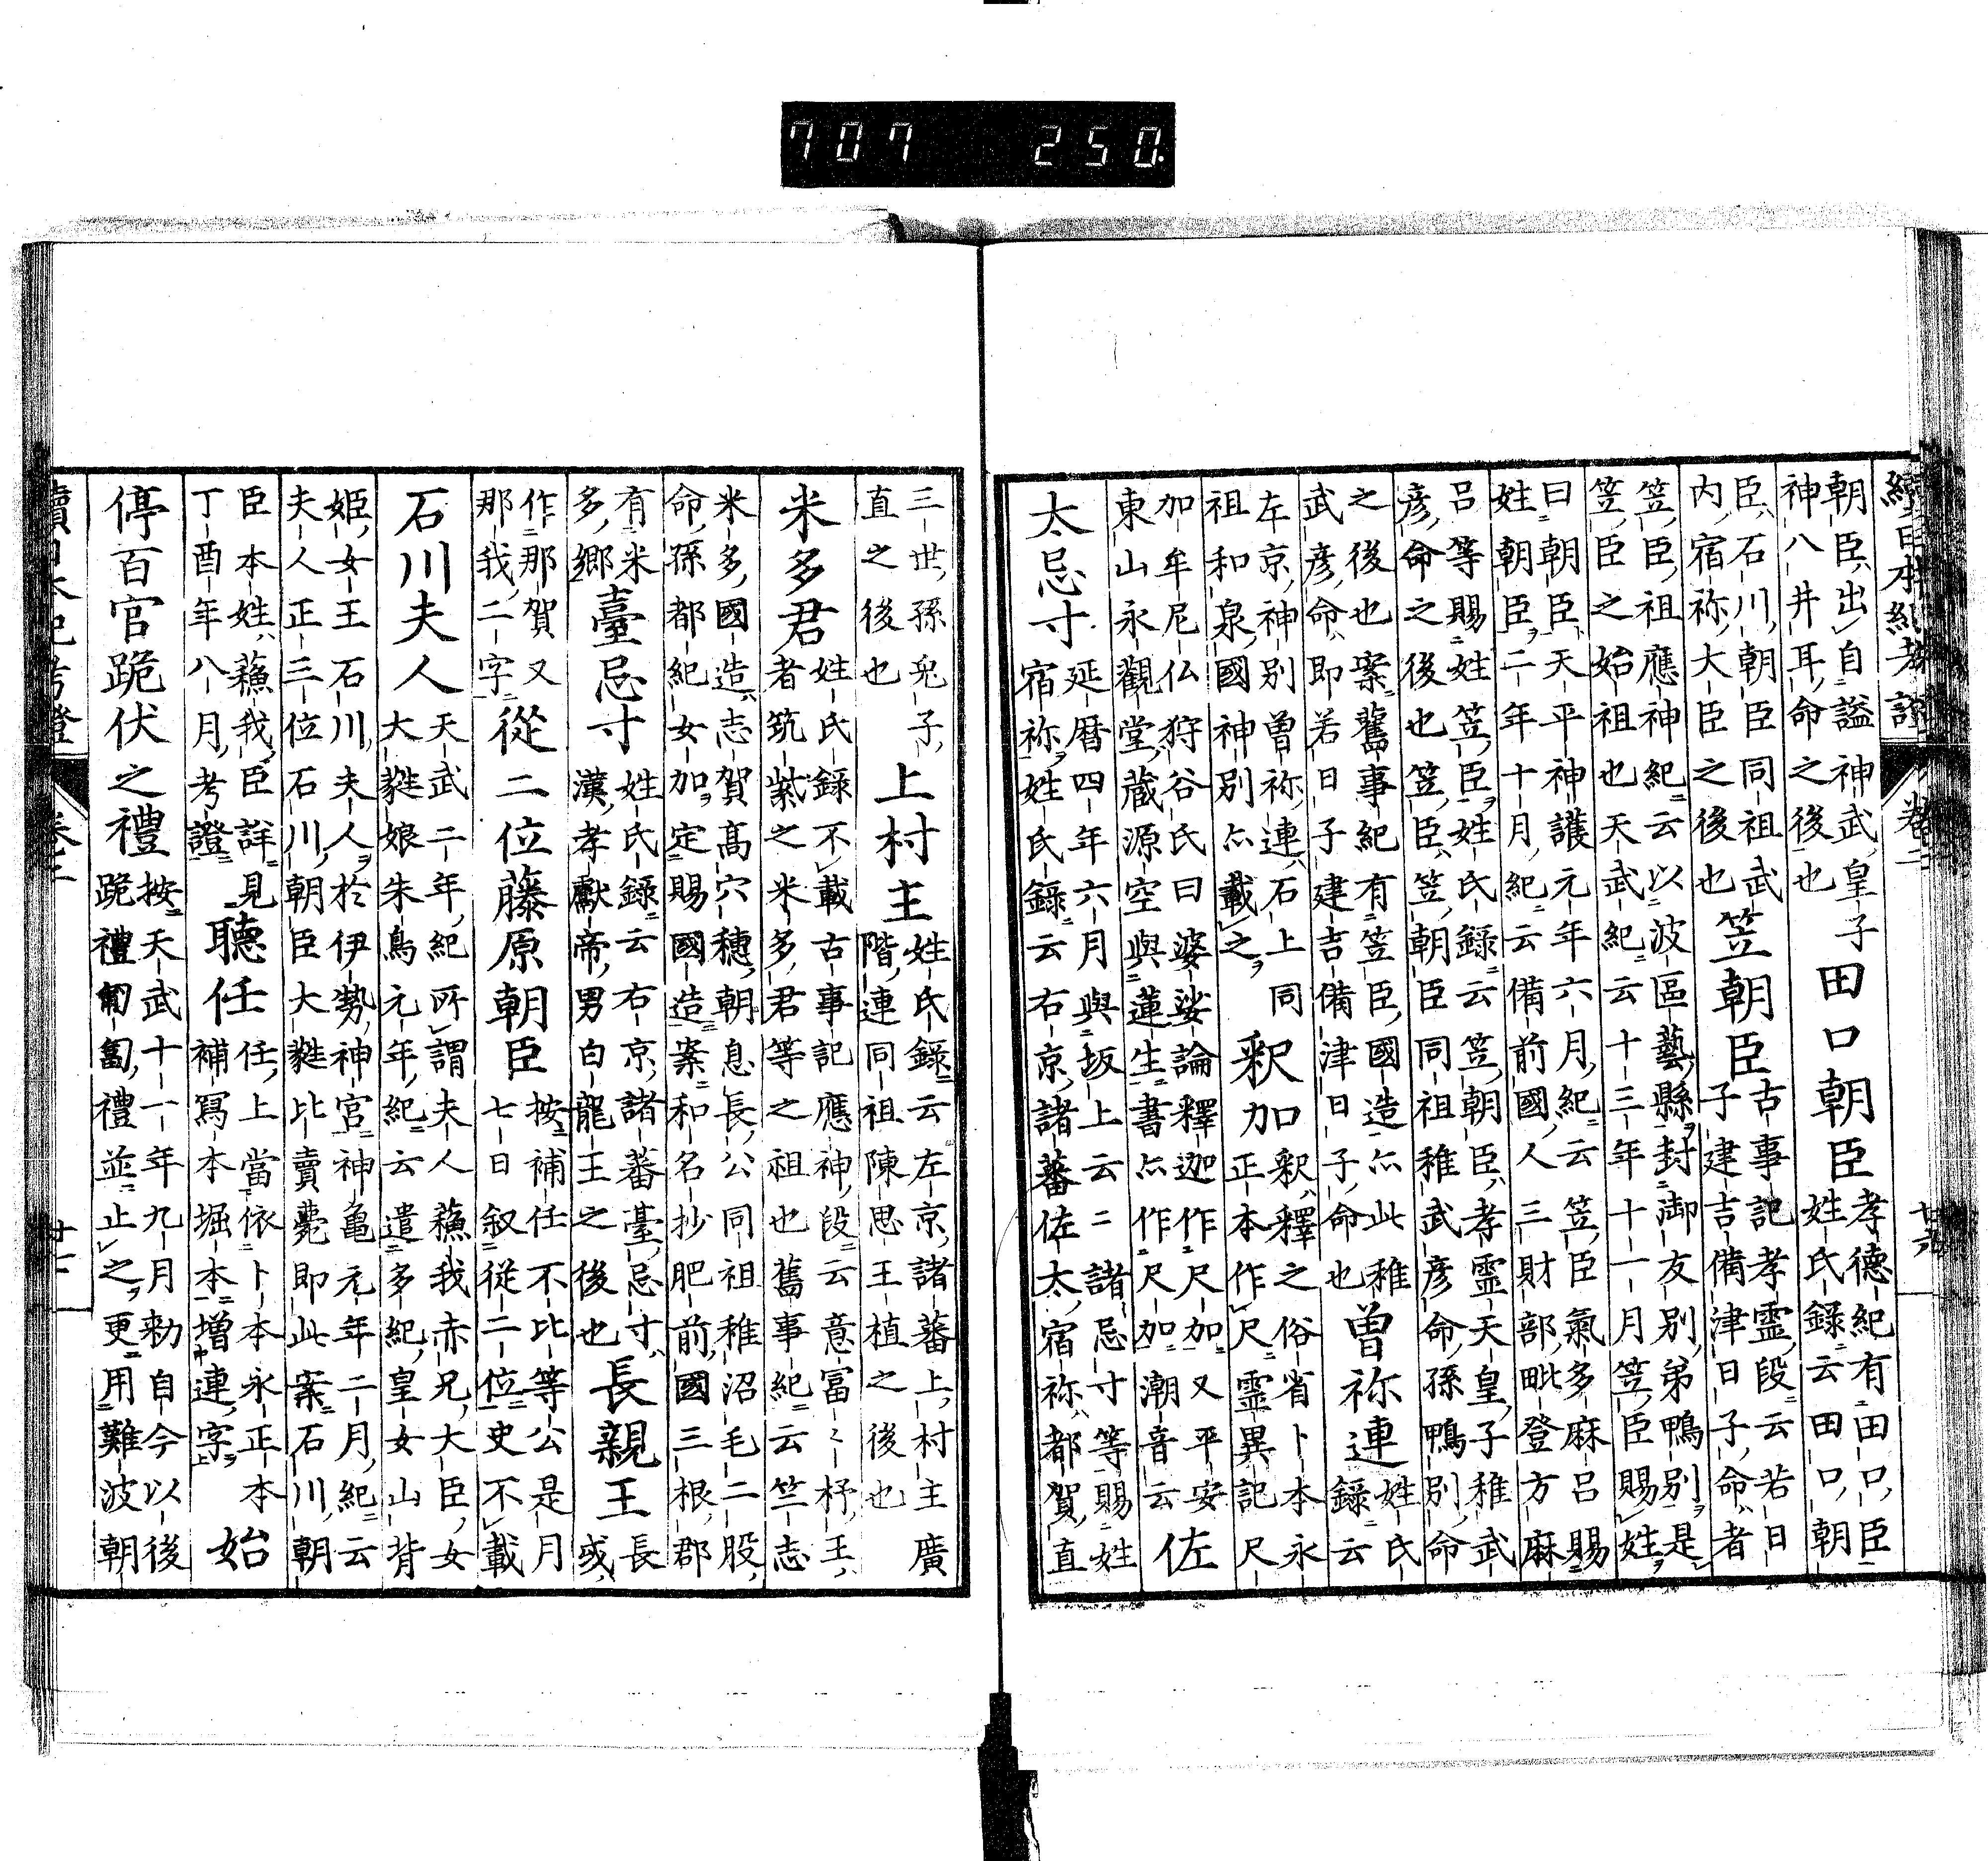 707 250.
續日本紀考證 卷二 廿六
朝臣出自謚神武皇子
神八井耳命之後也
田口朝臣
孝德紀有田口臣
姓氏錄云田口朝
臣石川朝臣同祖武
内宿祢大臣之後也
笠朝臣
古事記孝靈段云若日
子建吉備津日子命者
笠臣祖應神紀云以波區藝縣封御友別弟鴨別是
笠臣之始祖也天武紀云十三年十一月笠臣賜姓
曰朝臣天平神護元年六月紀云笠臣氣多麻呂賜
姓朝臣二年十月紀云備前國人三財部毗登方麻
呂等賜姓笠臣姓氏錄云笠朝臣孝靈天皇子稚武
彦命之後也笠臣笠朝臣同祖稚武彦命孫鴨別命
之後也案舊事紀有笠臣國造亦此稚
武彦命即若日子建吉備津日子命也
曽祢連
姓氏
錄云
左京神別曽祢連石上同
祖和泉國神別亦載之
釈加
釈釋之俗省卜本永
正本作尺靈異記尺
加牟尼仏狩谷氏曰婆娑論釋迦作尺加又平安
東山永觀堂藏源空與蓮生書亦作尺加潮音云
佐
太忌寸
延曆四年六月與坂上云々諸忌寸等賜姓
宿祢姓氏錄云右京諸蕃佐太宿祢都賀直
三世孫兎子
直之後也
上村主
姓氏錄云左京諸蕃上村主廣
階連同祖陳思王植之後也
米多君
姓氏錄不載古事記應神段云意富々杼王
者筑紫之米多君等之祖也舊事紀云竺志
米多國造志賀高穴穗朝息長公同祖稚沼毛二股
命孫都紀女加定賜國造案和名抄肥前國三根郡
有米
多鄉
臺忌寸
姓氏錄云右京諸蕃臺忌寸
漢孝獻帝男白龍王之後也
長親王
長
或
作那賀又
那我二字
從二位藤原朝臣
按補任不比等公是月
七日叙從二位史不載
石川夫人
天武二年紀所謂夫人蘇我赤兄大臣女
大蕤娘朱鳥元年紀云遣多紀皇女山背
姬女王石川夫人於伊勢神宮神亀元年二月紀云
夫人正三位石川朝臣大蕤比賣薨即此案石川朝
臣本姓蘇我臣詳見
丁酉年八月考證
聽任
任上當依卜本永正本
補寫本堀本增連字
始
停百官跪伏之禮
按天武十一年九月勅自今以後
跪禮匍匐禮並止之更用難波朝
續日本紀考證 卷二